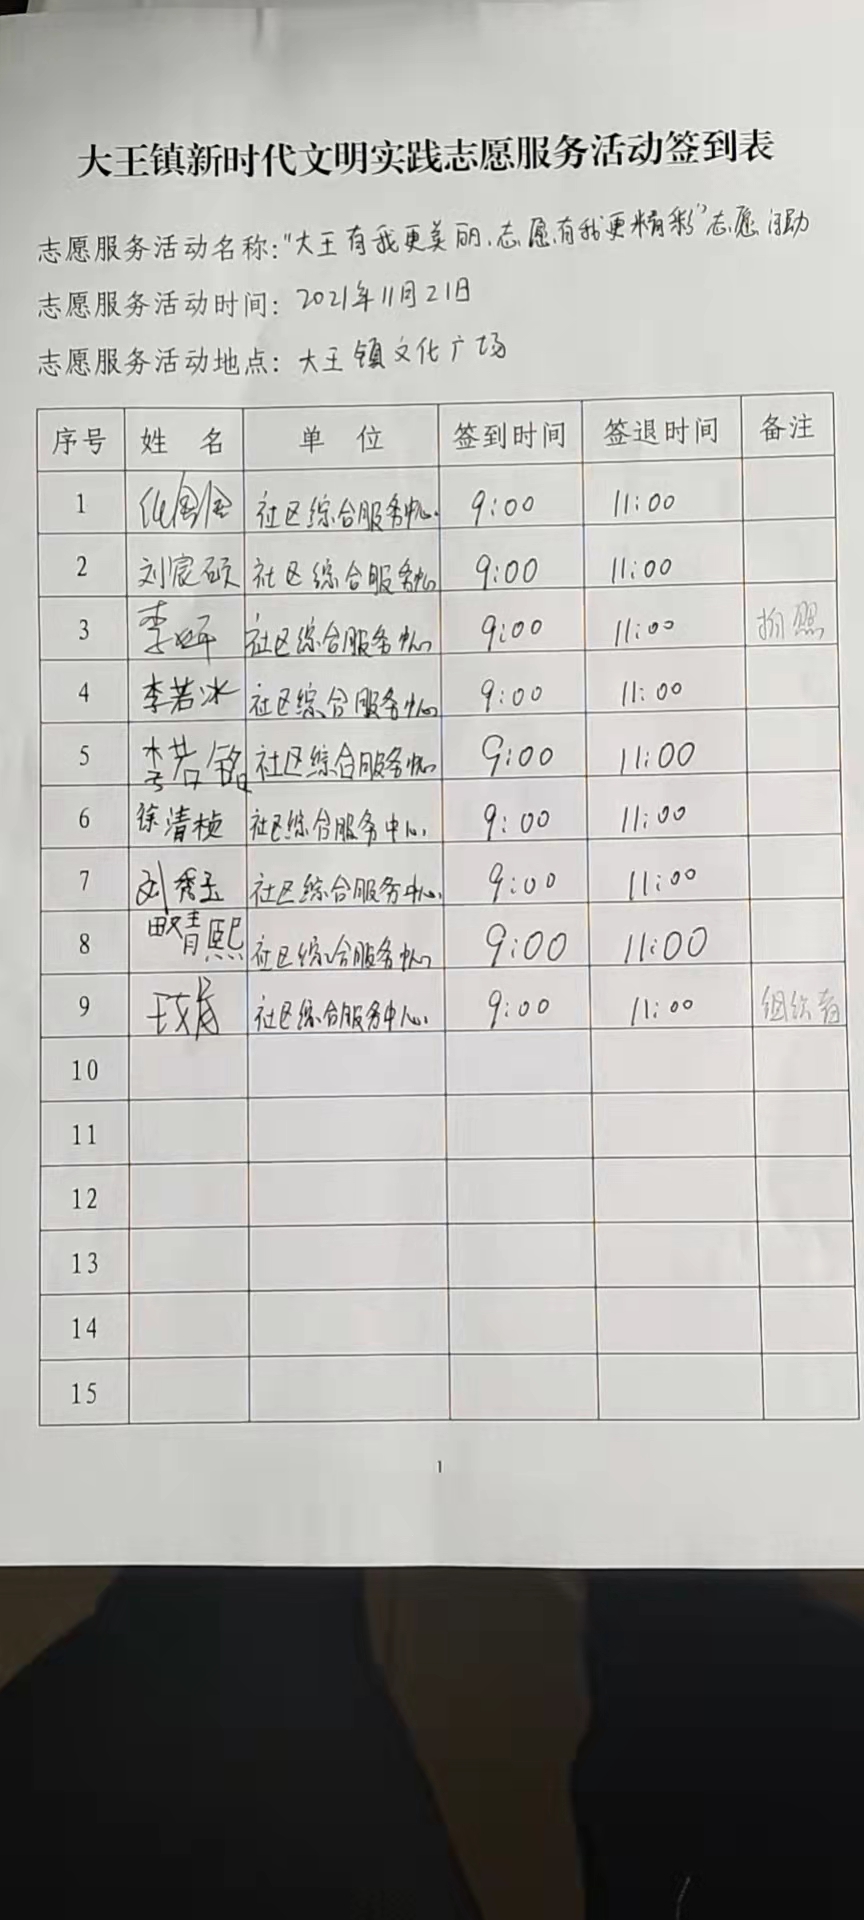 大王镇新时代文明实践志愿服务活动签到表
志愿服务活动名称："大王有我更美丽、志愿有我更精彩"志愿活动
志愿服务活动时间：2021年11月21日
志愿服务活动地点：大王镇文化广场
序号 姓 名 单 位 签到时间 签退时间 备注
1 社区综合服务中心 9:00 11:00
2 刘宸硕 社区综合服务中心 9:00 11:00
3 李 社区综合服务中心 9:00 11:00 拍照
4 李若冰 社区综合服务中心 9:00 11:00
5 李若铭 社区综合服务中心 9:00 11:00
6 徐清桢 社区综合服务中心 9:00 11:00
7 刘秀玉 社区综合服务中心 9:00 11:00
8 社区综合服务中心 9:00 11:00
9 社区综合服务中心 9:00 11:00 组织者
10
11
12
13
14
15
1